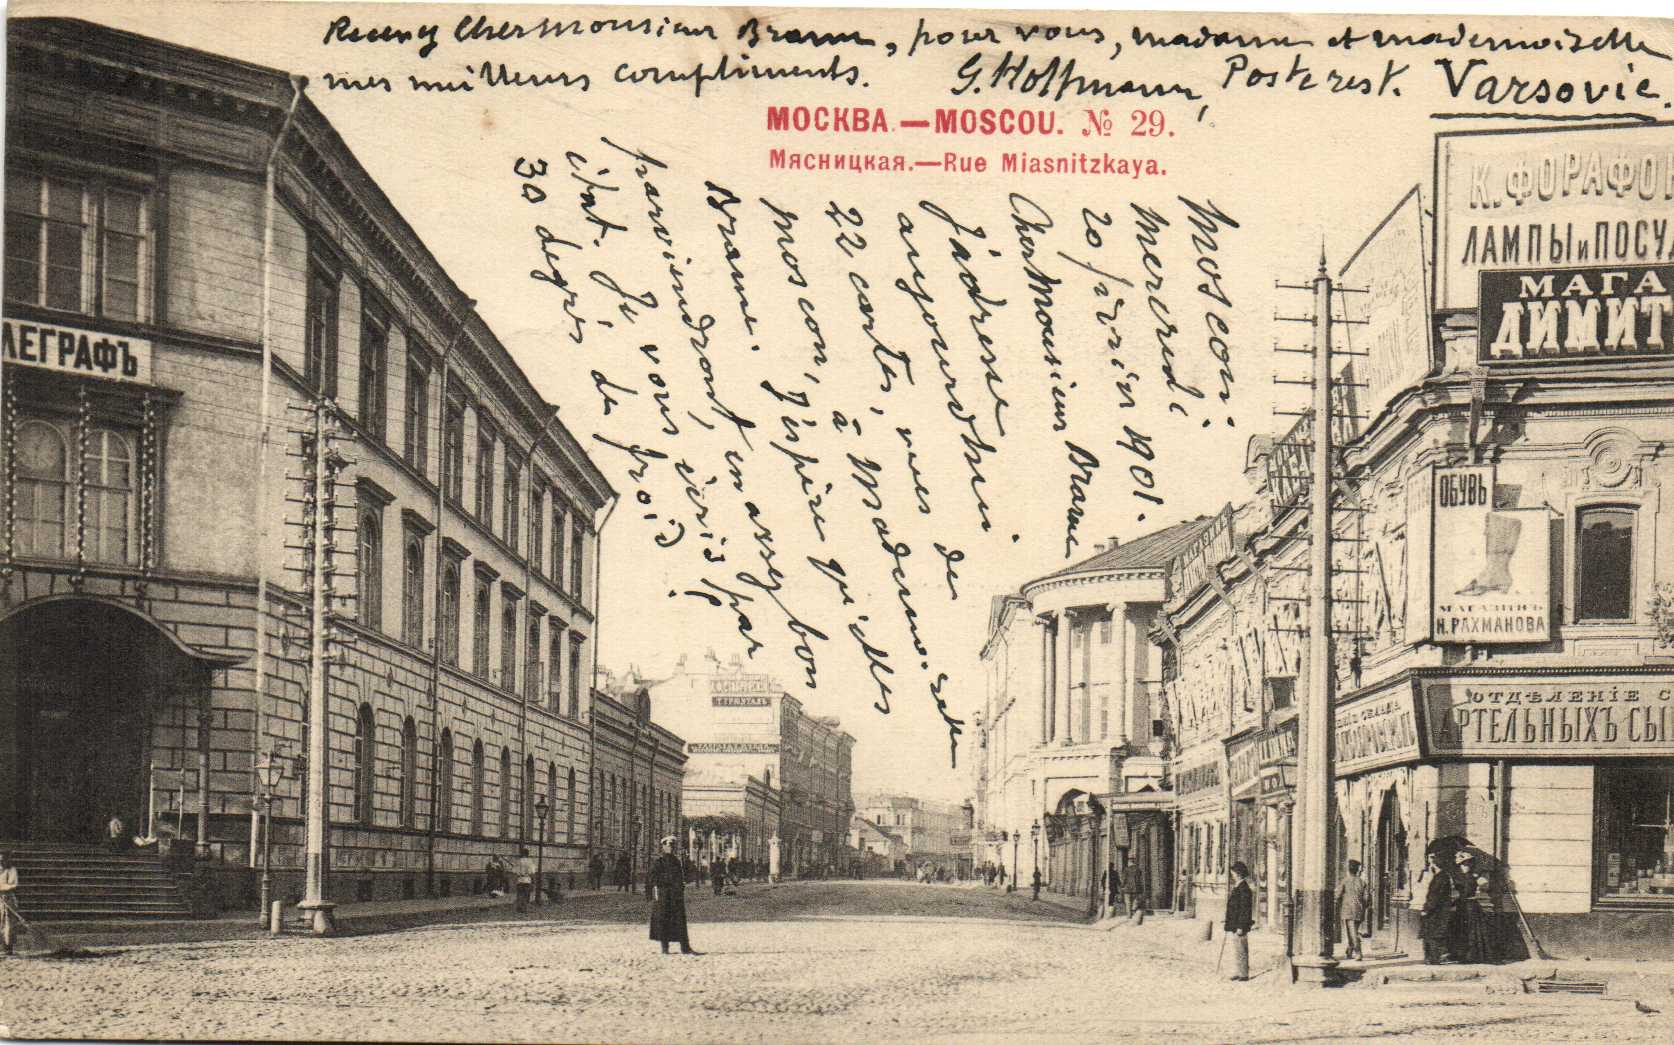 Recevez cher monsieur Braun, pour vous, madame et mademoiselle
mes meilleurs compliments. G. Hoffmann, Poste rest. Varsovie.
МОСКВА.—MOSCOU. № 29.
Мясницкая.—Rue Miasnitzkaya.
Moscou.
mercredi
20 février 1901.
Cher Monsieur Braun
J'adresse
aujourd'hui
22 cartes, vues de
moscou, à Mademoiselle
Braun. J'espère qu'elles
parviendront en assez bon
état. Je vous écris par
30 degrés de froid.
ЛЕГРАФЪ
К. ФОРАФОН
ЛАМПЫ и ПОСУД
МАГА
ДИМИТ
ОБУВЬ
МАГАЗИНЪ
Н. РАХМАНОВА
ОТДѢЛЕНІЕ С
АРТЕЛЬНЫХЪ СЫ